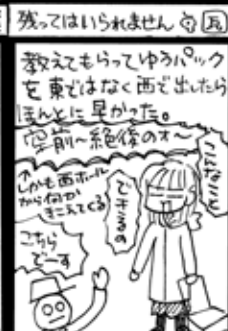 残ってはいられません
教えてもらってゆうパック
を東ではなく西で出したら
ほんとに早かった。
空前〜絶後のォ〜
こんなこと
できるの
しかも西ホール
から何か
きこえてくる
こちら
でーす